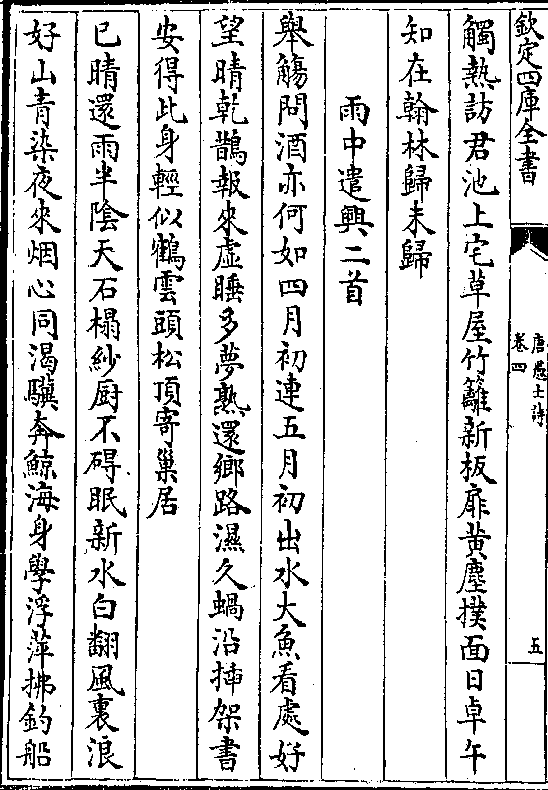 欽定四庫全書
唐愚士詩
卷四
五
觸熱訪君池上宅草屋竹籬新板扉黄塵撲面日卓午
知在翰林歸未歸
雨中遣興二首
舉觴問酒亦何如四月初連五月初出水大魚看處好
望晴乾鵲報來虚睡多夢熟還鄉路濕久蝸沿揷架書
安得此身輕似鶴雲頭松頂寄巢居
已晴還雨半陰天石榻紗厨不碍眠新水白翻風裏浪
好山青染夜來烟心同渴驥奔鯨海身學浮萍拂釣船